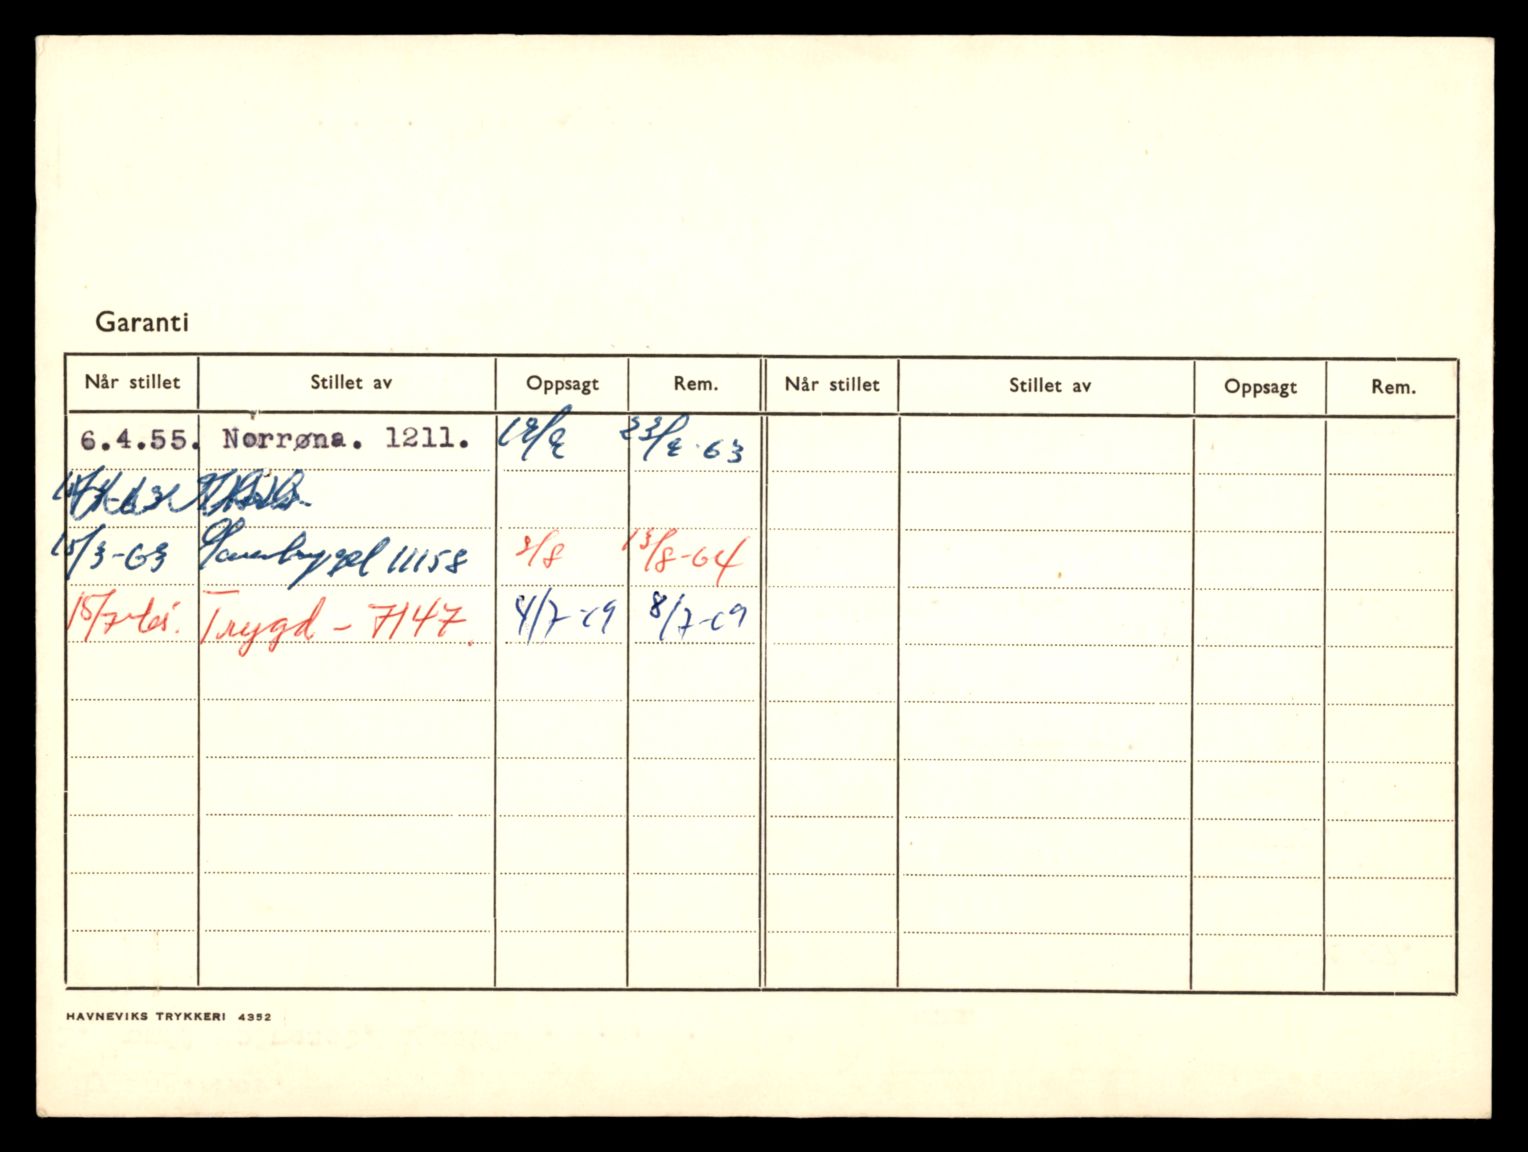 Garanti
Når stillet Stillet av Oppsagt Rem. Når stillet Stillet av Oppsagt Rem.
6.4.55. Norrøna. 1211. 12/2 23/2-63
15/3-63 11158 3/8 13/8-64
15/7-65. Trygd - 7147. 4/7-69 8/7-69
HAVNEVIKS TRYKKERI 4352